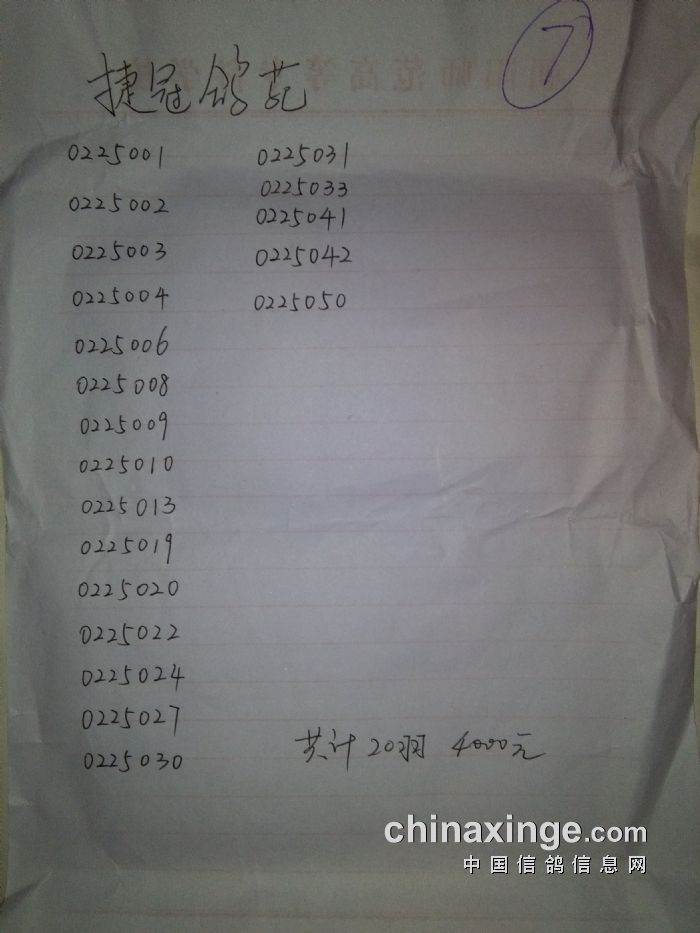 7
捷冠鸽苑
0225001
0225002
0225003
0225004
0225006
0225008
0225009
0225010
0225013
0225019
0225020
0225022
0225024
0225027
0225030
0225031
0225033
0225041
0225042
0225050
共计20羽 4000元
chinaxinge.com
中国信鸽信息网